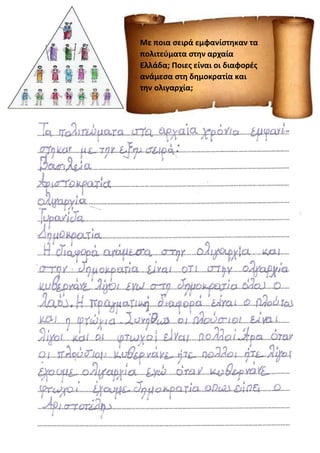 Με ποια σειρά εμφανίστηκαν τα
πολιτεύματα στην αρχαία
Ελλάδα; Ποιες είναι οι διαφορές
ανάμεσα στη δημοκρατία και
την ολιγαρχία;
Τα πολιτεύματα στα αρχαία χρόνια εμφανί-
στηκαν με την εξης σειρά:
Βασιλεία
Αριστοκρατία
ολιγαρχία
Τυραννίδα
Δημοκρατία
Η διαφορά ανάμεσα στην ολιγαρχία και
στην δημοκρατία είναι οτι στην ολιγαρχία
κυβερνάνε λίγοι ενω στη δημοκρατία όλος ο
λαός. Η πραγματική διαφορά είναι ο πλούτος
και η φτώχια. Συνήθως οι πλούσιοι είναι
λίγοι και οι φτωχοί είναι πολλοί. Άρα όταν
οι πλούσιοι κυβερνάνε ήτε πολλοι ήτε λίγοι
έχουμε ολιγαρχία ενώ όταν κυβερνάνε
φτωχοί έχουμε δημοκρατία οπως είπε ο
Αριστοτέλης